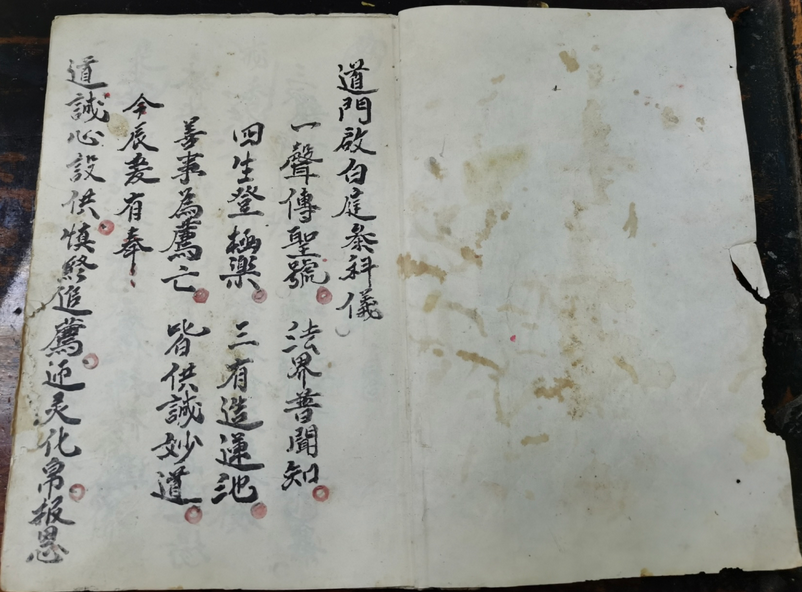 道門啟白庭參科儀
一聲傳聖號 法界普聞知
四生登極樂 三有造蓮池
善事為薦亡 皆供誠妙道
今辰爰有奉
道誠心設供慎終追薦迎灵化帛報恩